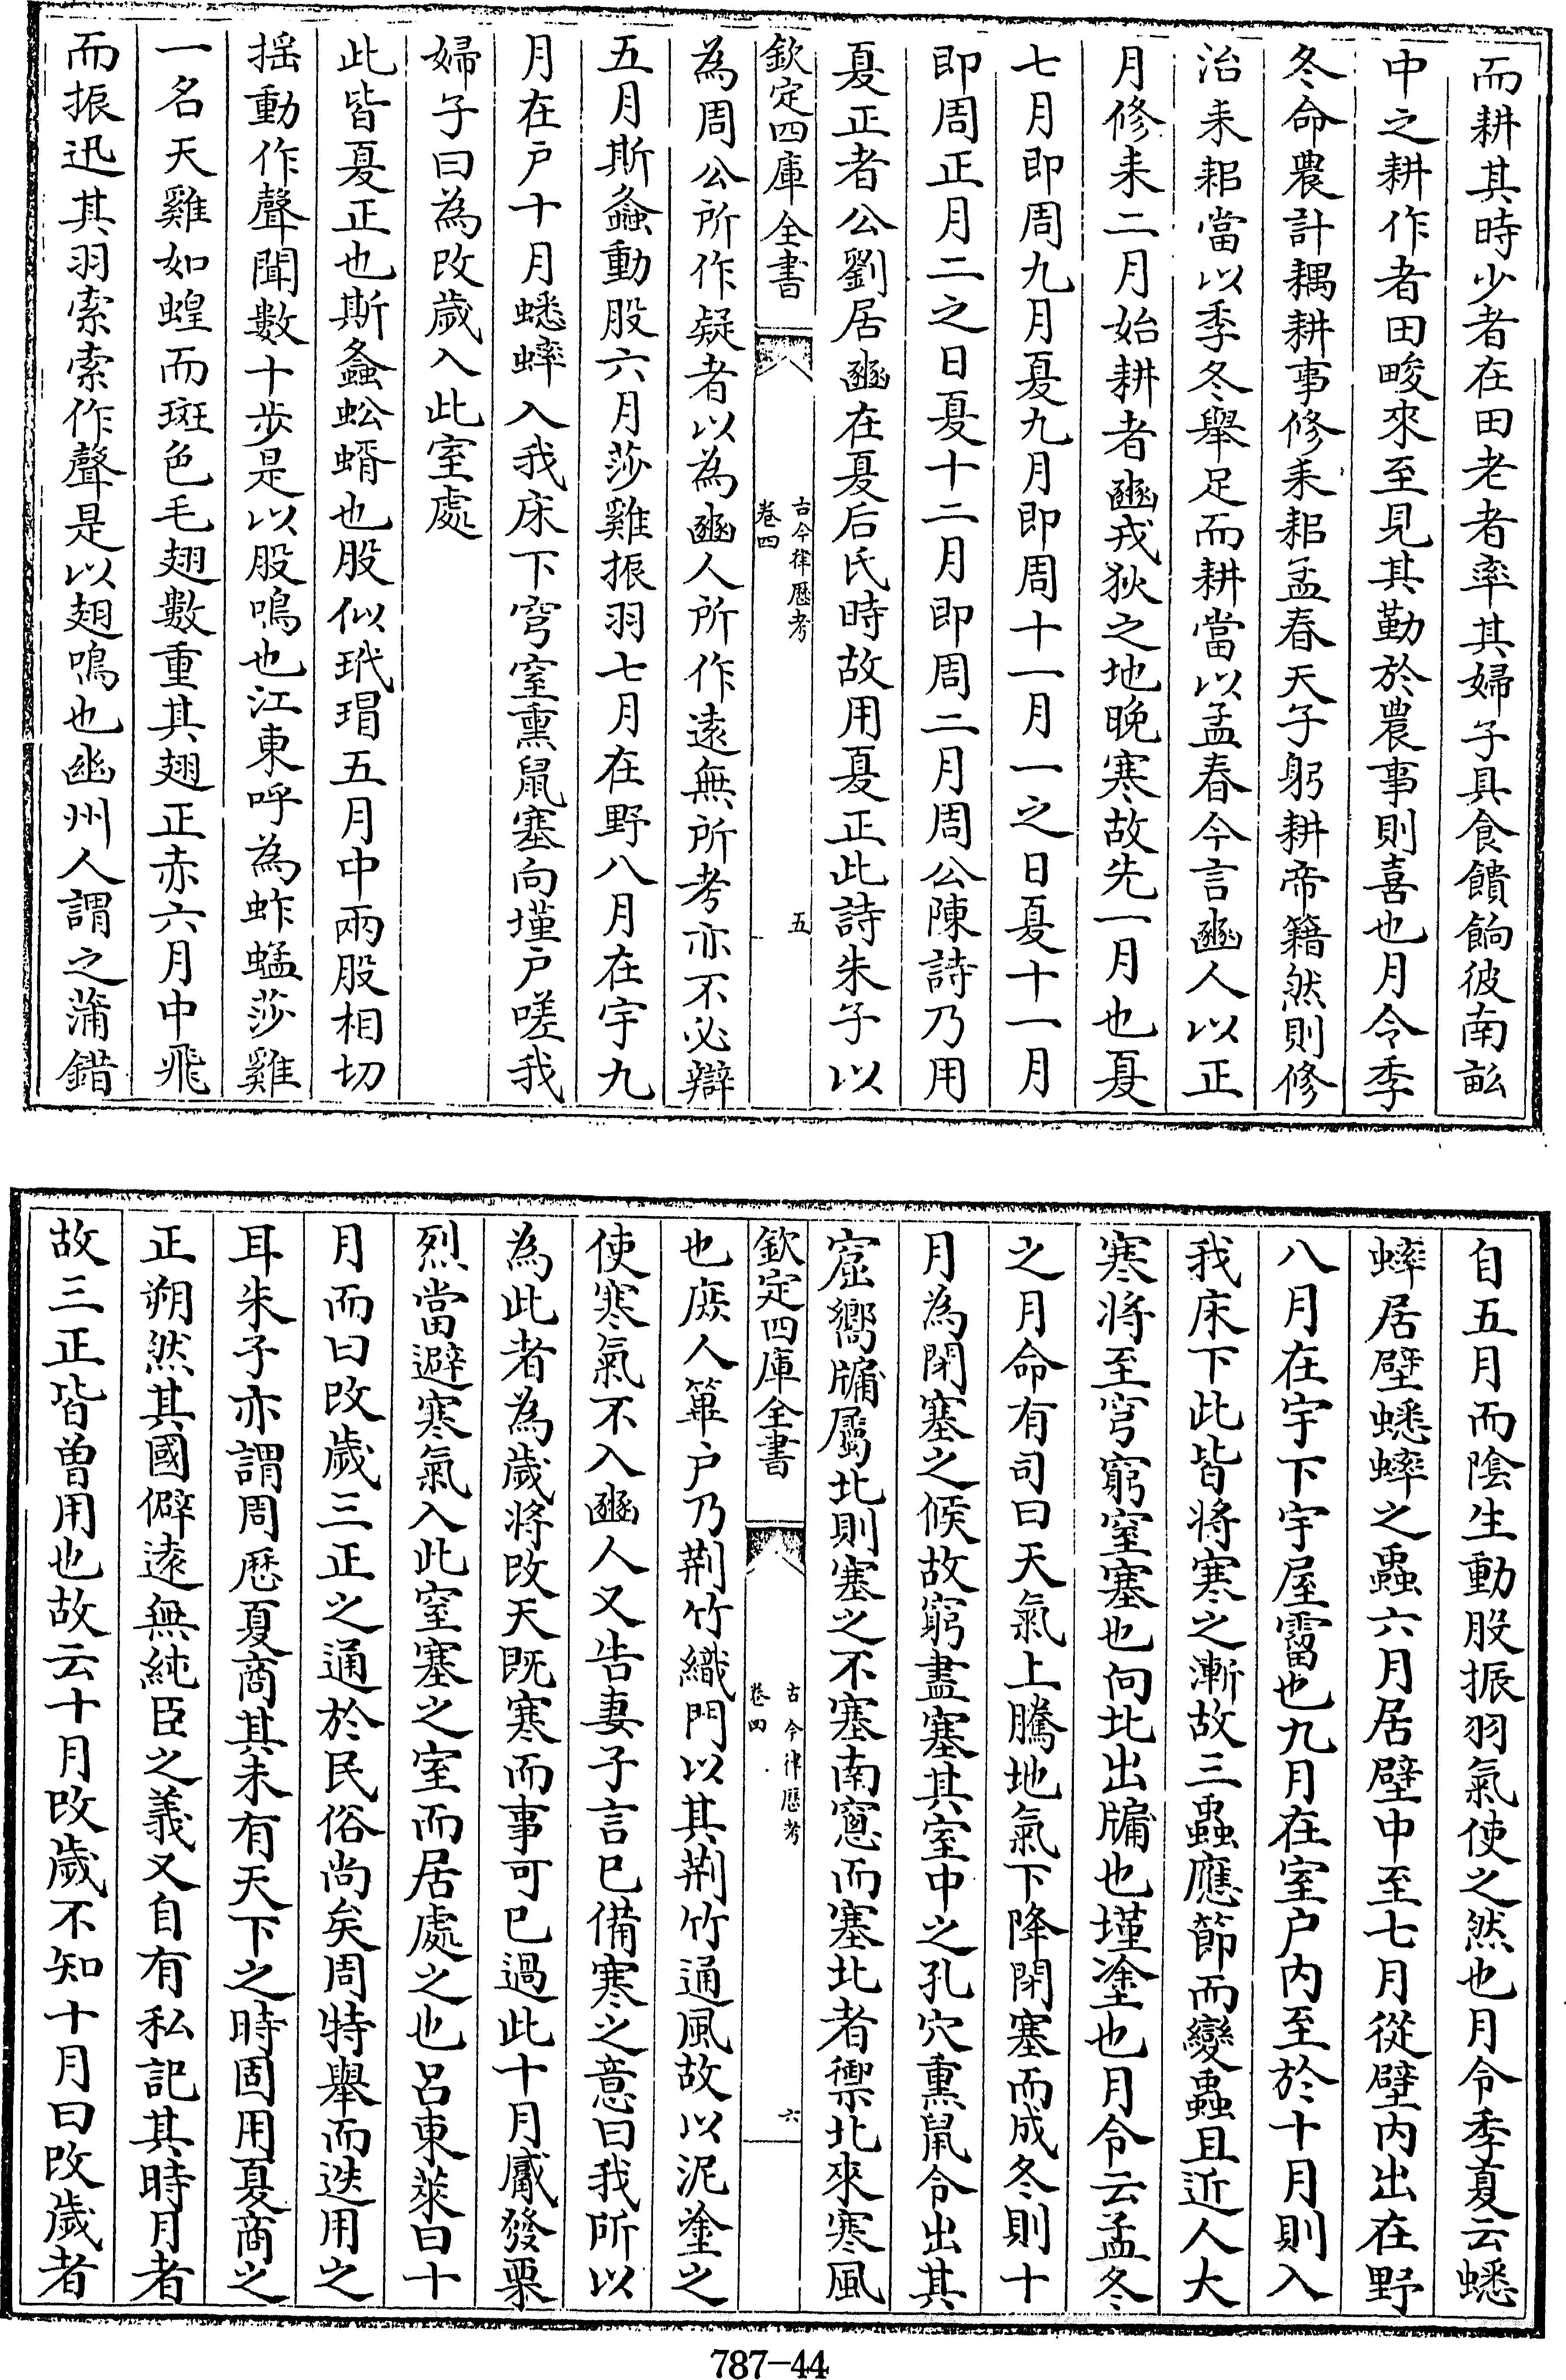 而耕其時少者在田老者率其婦子具食饋餉彼南畝
中之耕作者田畯來至見其勤於農事則喜也月令季
冬命農計耦耕事修耒耜孟春天子躬耕帝籍然則修
治耒耜當以季冬舉足而耕當以孟春今言豳人以正
月修耒二月始耕者豳戎狄之地晚寒故先一月也夏
七月即周九月夏九月即周十一月一之日夏十一月
即周正月二之日夏十二月即周二月周公陳詩乃用
夏正者公劉居豳在夏后氏時故用夏正此詩朱子以
欽定四庫全書
古今律歷考
卷四
五
為周公所作疑者以為豳人所作遠無所考亦不必辯
五月斯螽動股六月莎雞振羽七月在野八月在宇九
月在戶十月蟋蟀入我床下穹窒熏鼠塞向墐戶嗟我
婦子曰為改歲入此室處
此皆夏正也斯螽蚣蝑也股似玳瑁五月中兩股相切
搖動作聲聞數十步是以股鳴也江東呼為蚱蜢莎雞
一名天雞如蝗而斑色毛翅數重其翅正赤六月中飛
而振迅其羽索索作聲是以翅鳴也幽州人謂之蒲錯
自五月而陰生動股振羽氣使之然也月令季夏云蟋
蟀居壁蟋蟀之蟲六月居壁中至七月從壁內出在野
八月在宇下宇屋霤也九月在室戶內至於十月則入
我床下此皆將寒之漸故三蟲應節而變蟲且近人大
寒將至穹窮窒塞也向北出牖也墐塗也月令云孟冬
之月命有司曰天氣上騰地氣下降閉塞而成冬則十
月為閉塞之候故窮盡塞其室中之孔穴熏鼠令出其
窟嚮牖屬北則塞之不塞南窻而塞北者禦北來寒風
欽定四庫全書
古今律歷考
卷四
六
也庶人篳戶乃荆竹織門以其荆竹通風故以泥塗之
使寒氣不入豳人又告妻子言已備寒之意曰我所以
為此者為歲將改天既寒而事可已過此十月觱發栗
烈當避寒氣入此窒塞之室而居處之也呂東萊曰十
月而曰改歲三正之通於民俗尚矣周特舉而迭用之
耳朱子亦謂周歷夏商其未有天下之時固用夏商之
正朔然其國僻遠無純臣之義又自有私記其時月者
故三正皆曽用也故云十月改歲不知十月曰改歲者
787-44